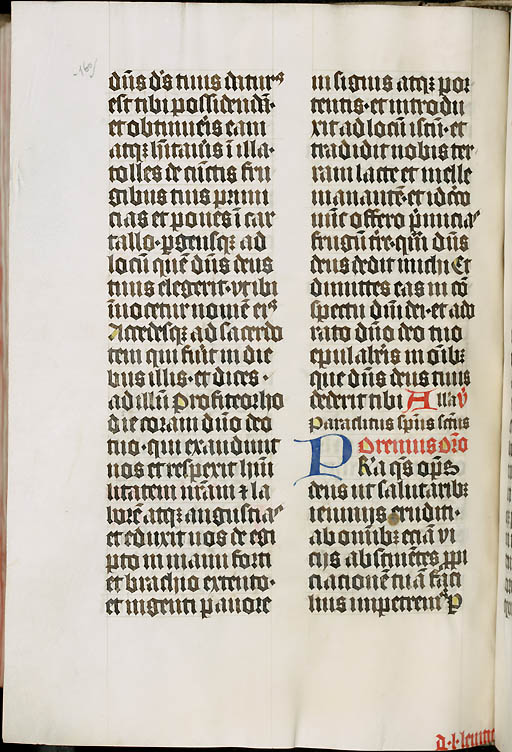 160
dūs ds̄ tuus datur9
est tibi possidendā·
et obtinueris eam
atqꝫ hītaueris ī illa·
tolles de cūctis fru
gibus tuis primi
cias et pones ī car
tallo· pgensqꝫ ad
locū quē dūs deus
tuus elegerit· vt ibi
īuocetur nomē ei9
Accedesqꝫ ad sacerdo
tem qui fuīt in die
bus illis· et dices·
ad illū Profiteor ho
die coram dūo deo
tuo· qui exaudiuit
nos et respexit hūi
litatem nrām ⁊ la
borē atqꝫ angustia
et eduxit nos de egi
pto in manu forti
et brachio extento·
et ingenti pauore
in signis atqꝫ por
tentis· et introdu
xit ad locū istū· et
tradidit nobis ter
ram lacte et melle
manantē· et idcō
nūc offero pmicia
frugū tre· qm̄ dūs
deus dedit michi Et
dimittes eas in cō
spectu dūi dei· et ado
rato dūo deo tuo
epulaberis in oībꝫ
que dūs deus tuus
dederit tibi Alla v̄
Paraclitus spūs scūs
P oremus orō
Ra qs̄ opēs
deus ut salutaribꝫ
ieiunijs eruditi·
ab omībꝫ eciā vi
cijs abstinētes ppi
ciationē tuā faci
lius impetrem9 P
d·l·leuitic